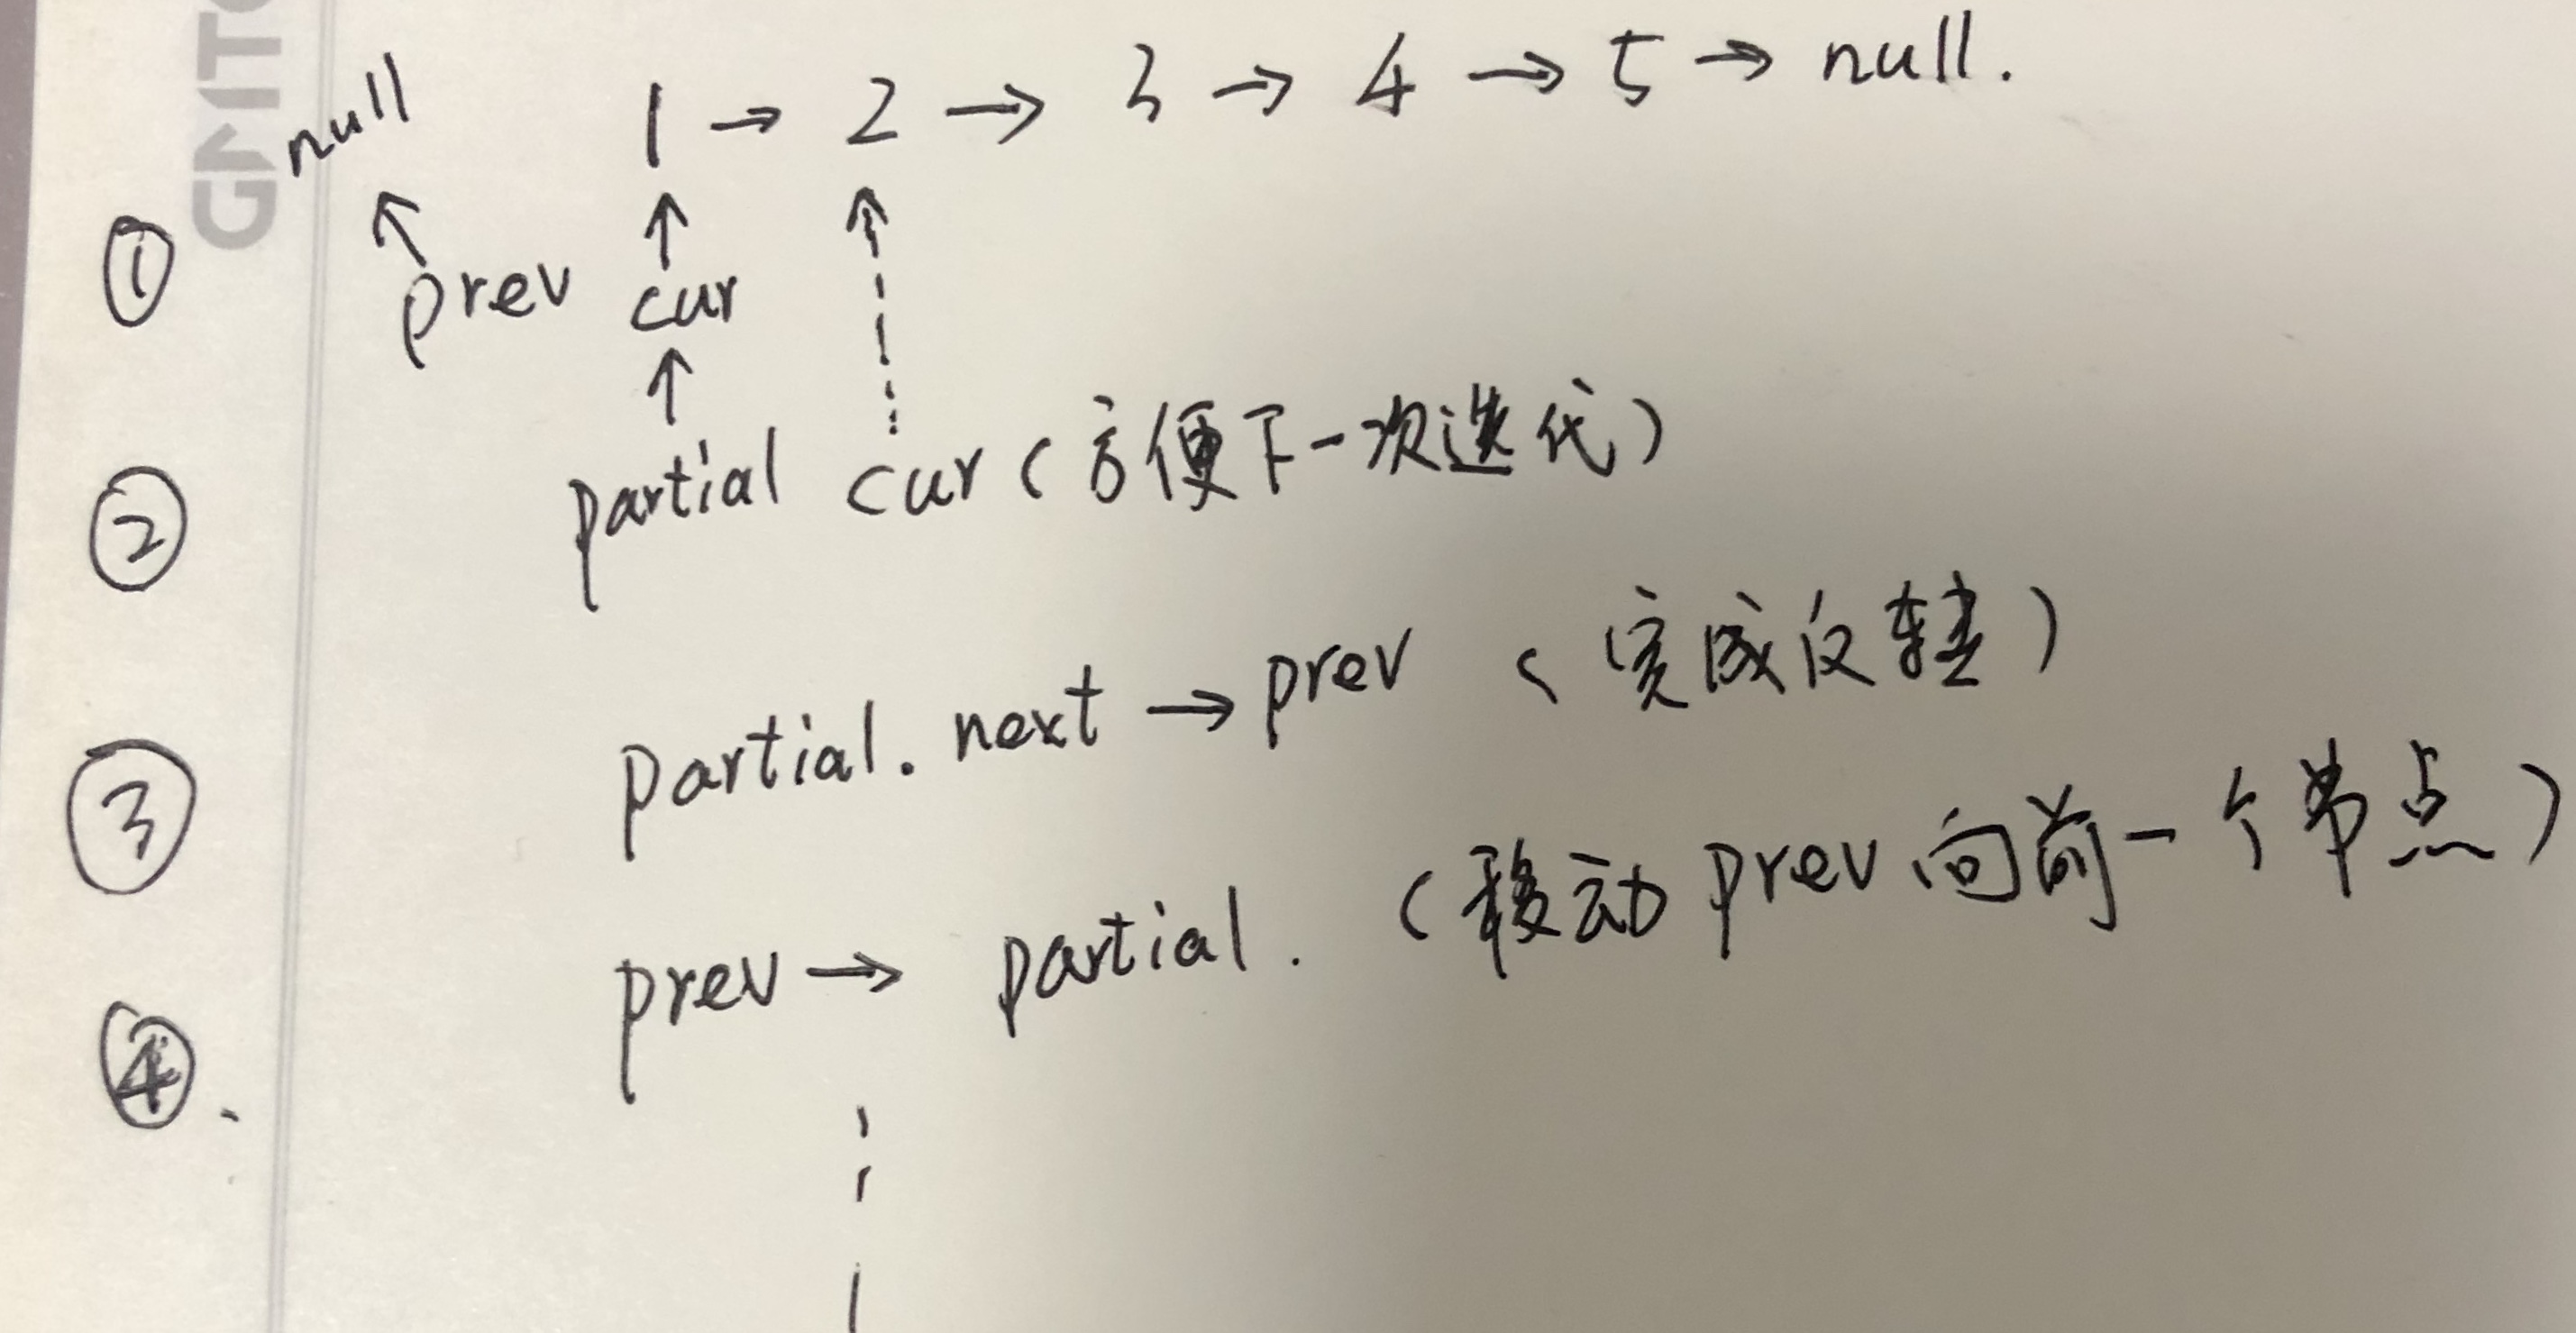 null 1 → 2 → 3 → 4 → 5 → null.
① prev cur
② partial cur (方便下一次迭代)
partial.next → prev (完成反转)
③
prev → partial. (移动prev向前一个节点)
④.